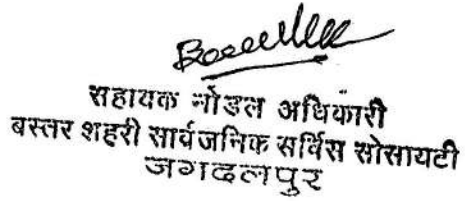 सहायक नोडल अधिकारी
बस्तर शहरी सार्वजनिक सर्विस सोसायटी
जगदलपुर